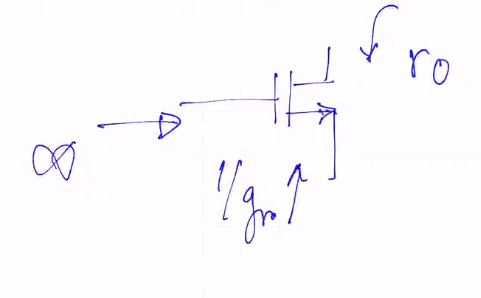 r0
∞
1/gm